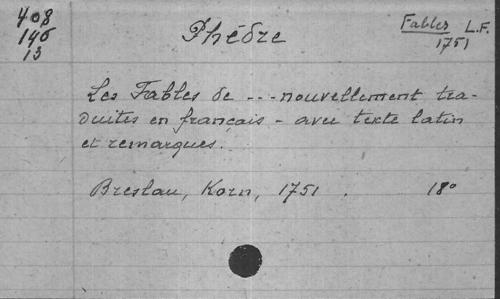 408
146
13
Phédre
Fables L.F.
1751
Les Fables de --- nouvellement tra-
duites en français - avec texte latin
et remarques.
Breslau, Korn, 1751. 18°